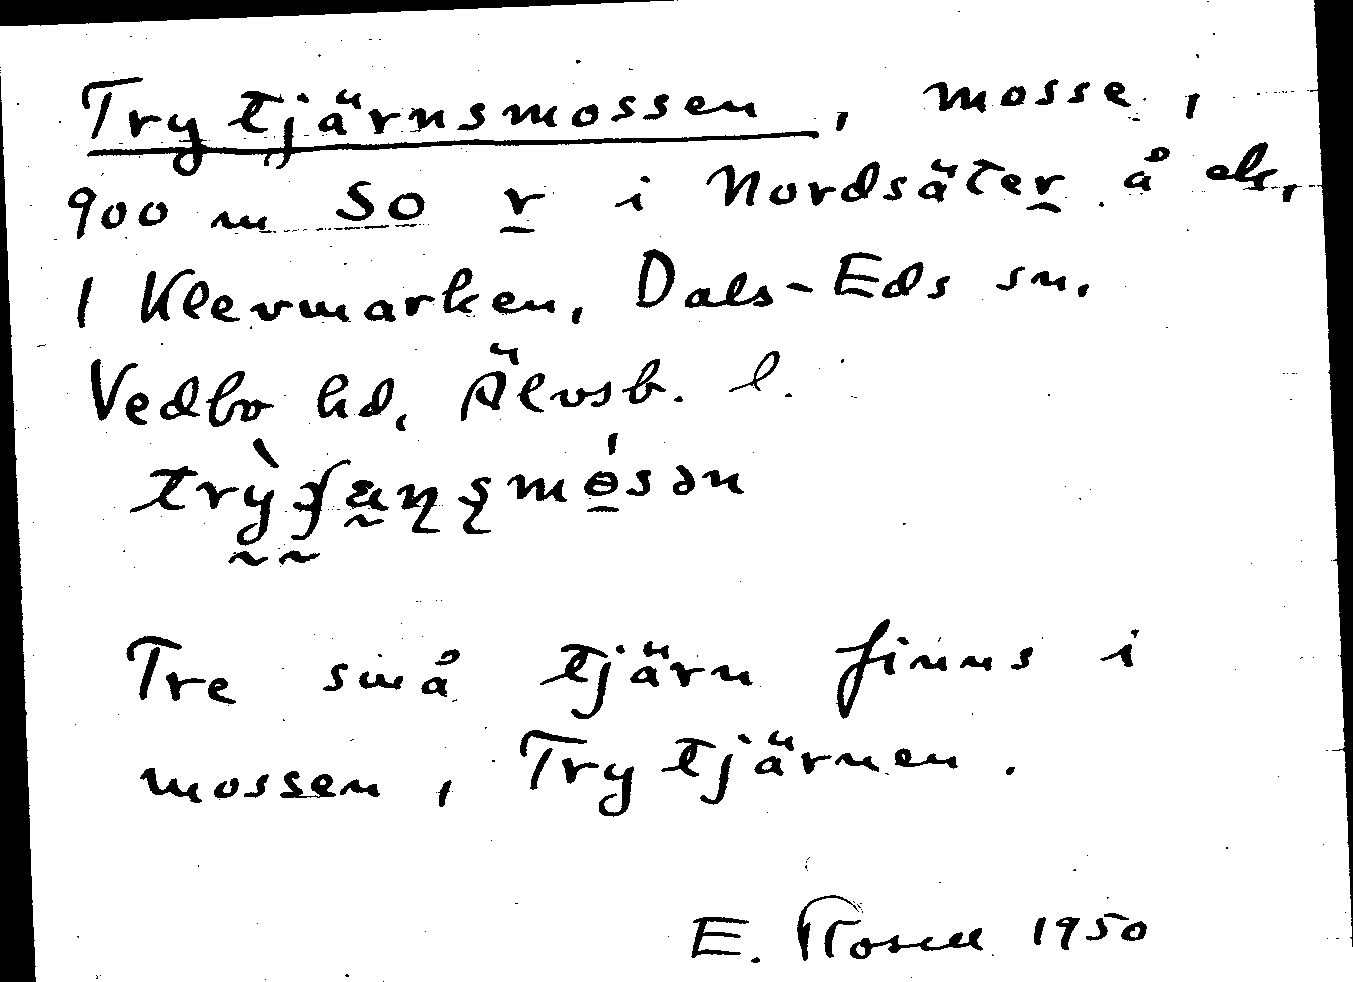 Trytjärnsmossen, mosse,
900 m SO r i Nordsäter å ek,
1 Klevmarken, Dals-Eds sn.
Vedbo hd, Älvsb. l.
Tre små tjärn finns i
mossen, Trytjärnen.
E. Rosell 1950